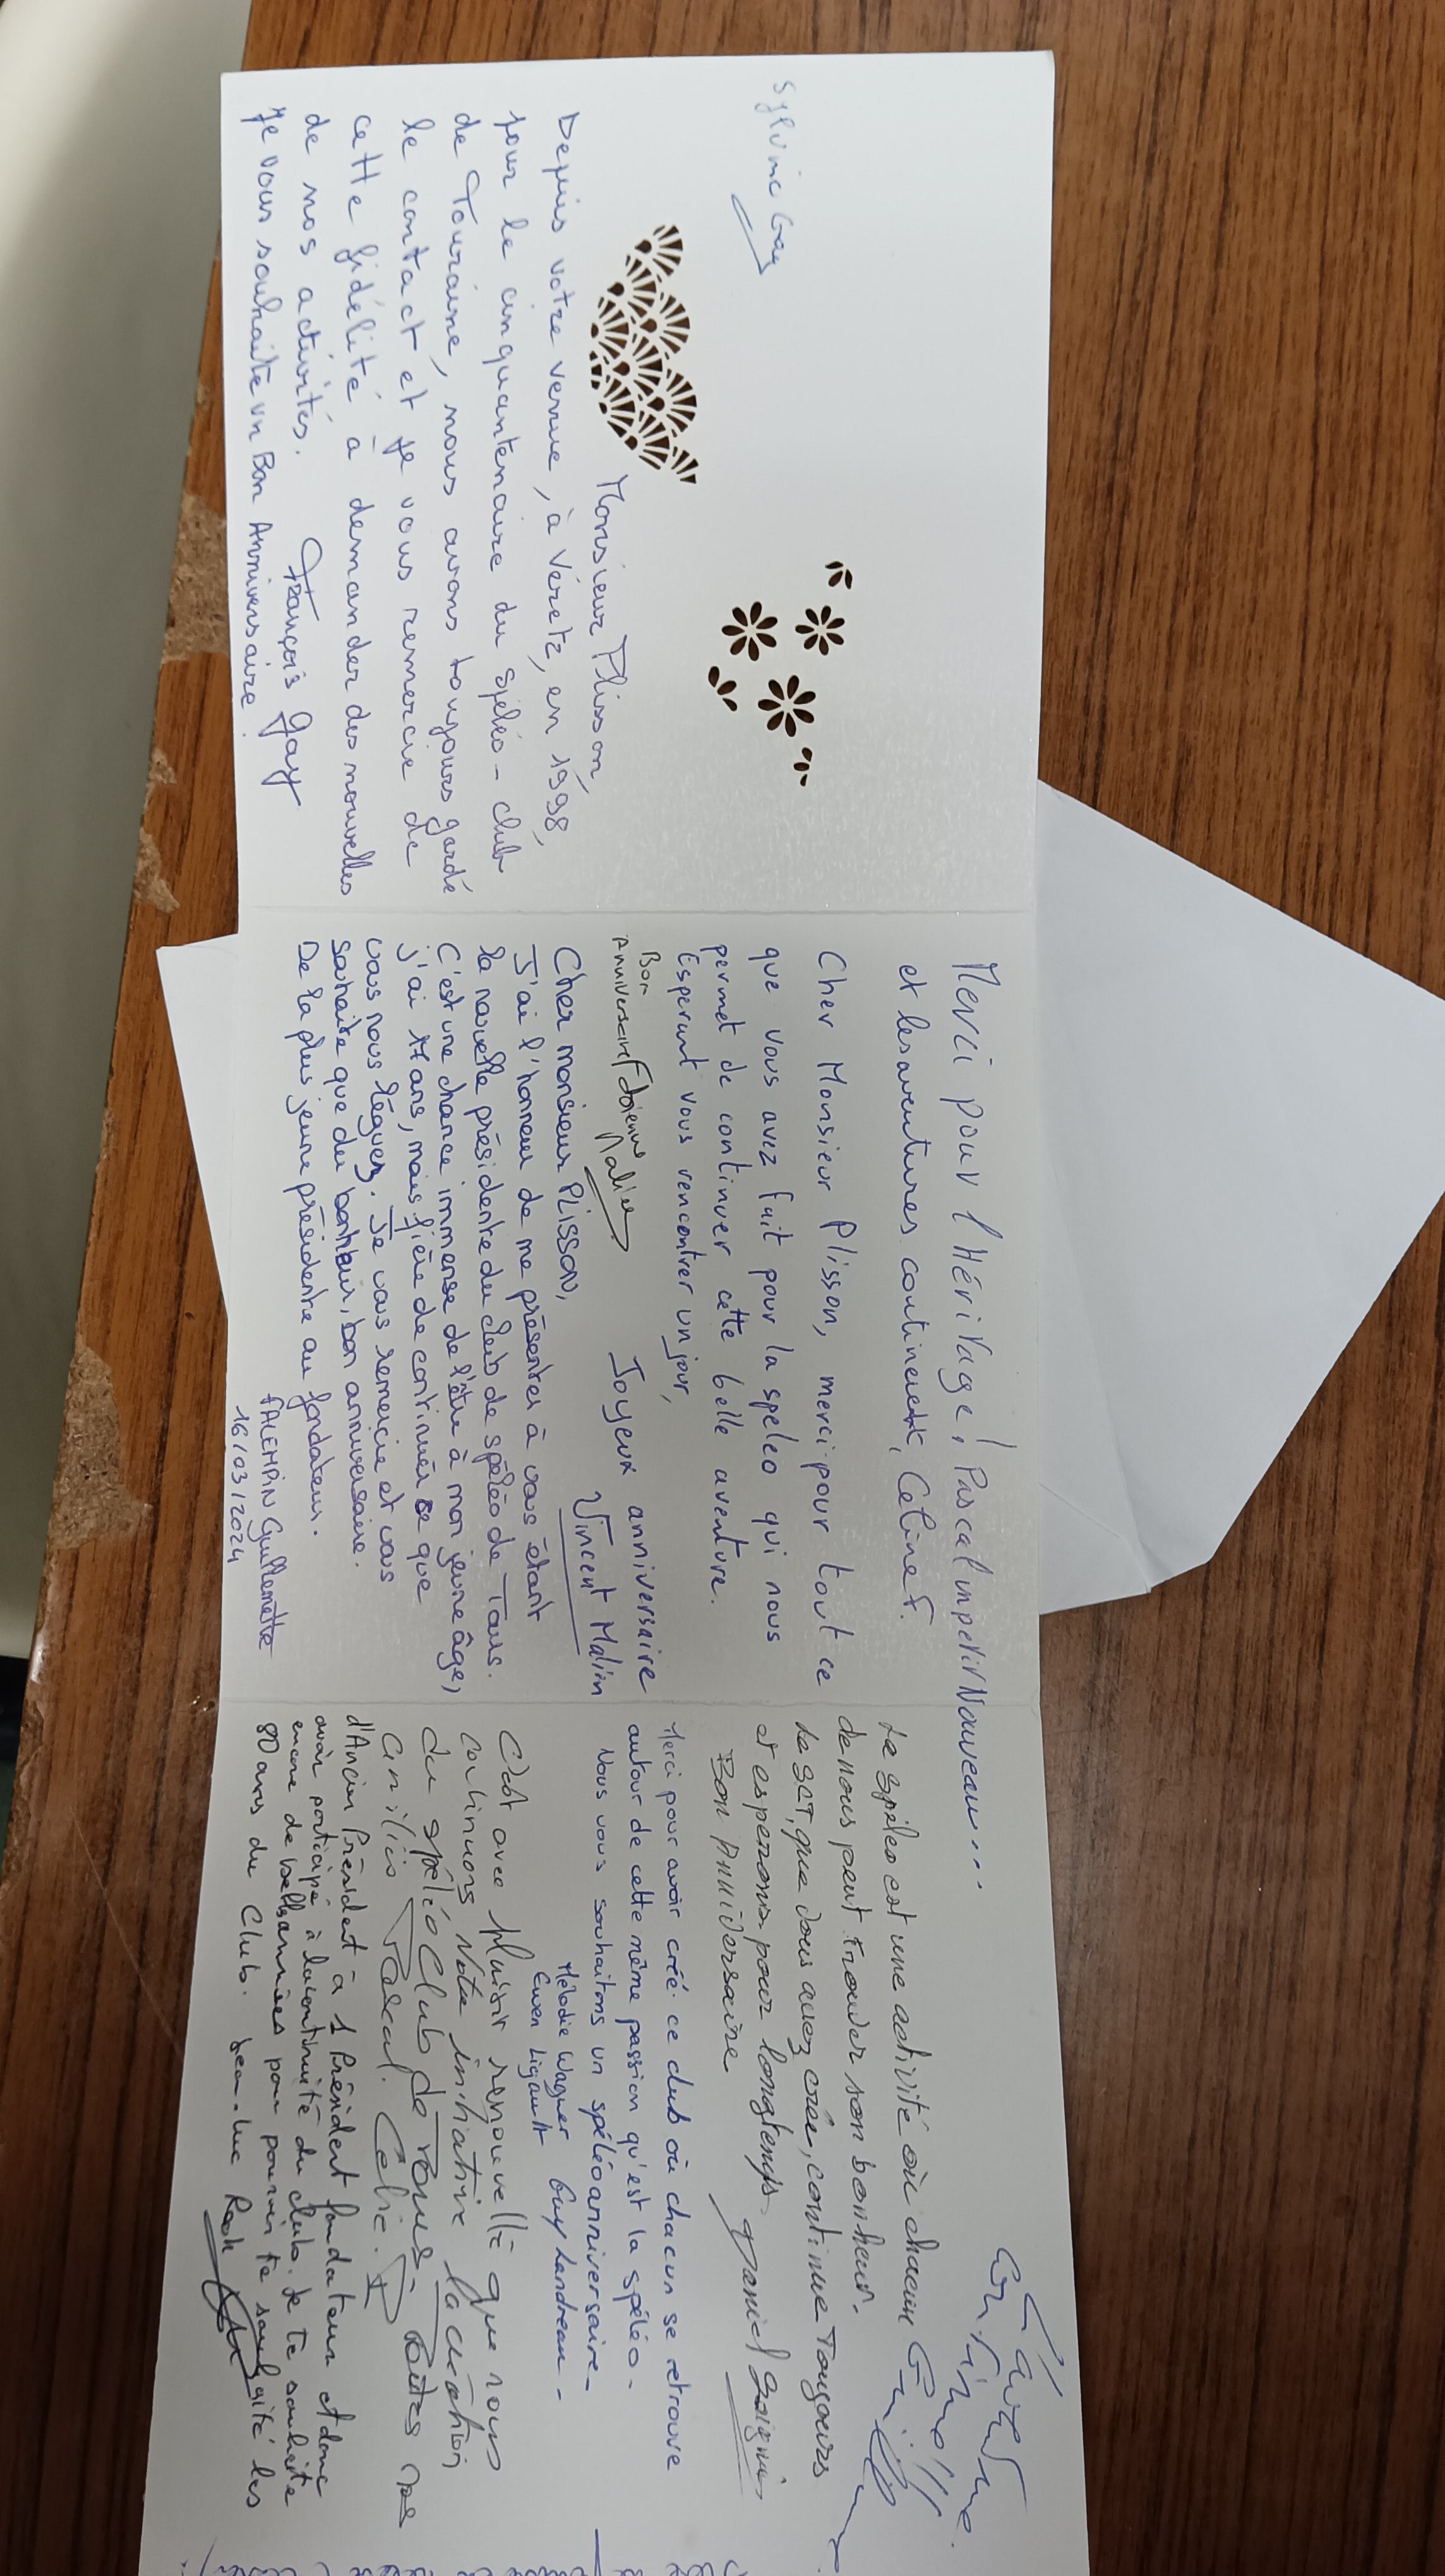 Sylvie Gay
Monsieur Plisson,
Depuis votre venue, à Véretz, en 1998,
pour le cinquantenaire du spéléo-club
de Touraine, nous avons toujours gardé
le contact et je vous remercie de
cette fidélité à demander des nouvelles
de nos activités.
François Gay
Je vous souhaite un Bon Anniversaire
Merci pour l'Héritage! Pascal un petit Nouveau...
et les aventures continuent, Céline F.
Cher Monsieur Plisson, merci pour tout ce
que vous avez fait pour la spéléo qui nous
permet de continuer cette belle aventure.
Esperant vous rencontrer un jour,
Bon
Anniversaire
Joyeux anniversaire
Vincent Malin
Cher monsieur PLISSON,
J'ai l'honneur de me présenter à vous étant
la nouvelle présidente du club de spéléo de Tours.
C'est une chance immense de l'être à mon jeune âge,
j'ai 17 ans, mais fière de continuer ce que
vous nous léguez. Je vous remercie et vous
souhaite que du bonheur, bon anniversaire.
De la plus jeune présidente au fondateur.
FALEMPIN Guillemette
16/03/2024
La spéléo est une activité où chacun
de nous peut trouver son bonheur.
Le SCT, que vous avez crée, continue Toujours
et esperons pour longtemps
Bon Anniversaire
Daniel
Merci pour avoir créé ce club où chacun se retrouve
autour de cette même passion qu'est la spéléo.
Nous vous souhaitons un spéléo anniversaire.
Mélodie Wagner Guy Landreau.
Ewen Ligault
C'est avec plaisir renouvellé que nous
continuons votre initiative la création
du spéléo Club de Tours. Toutes nos
Amitiés Pascal. Célie.
d'Ancien Président à 1 Président fondateur et donc
avoir participé à la continuité du club. Je te souhaite
encore de belles années pour pouvoir te souhaité les
80 ans du Club. Jean-Luc